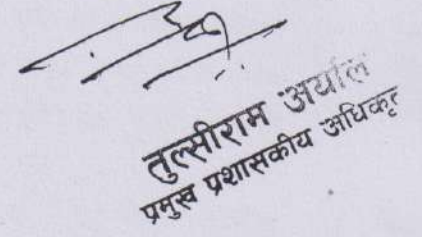 तुल्सीराम अर्याल
प्रमुख प्रशासकीय अधिकृत